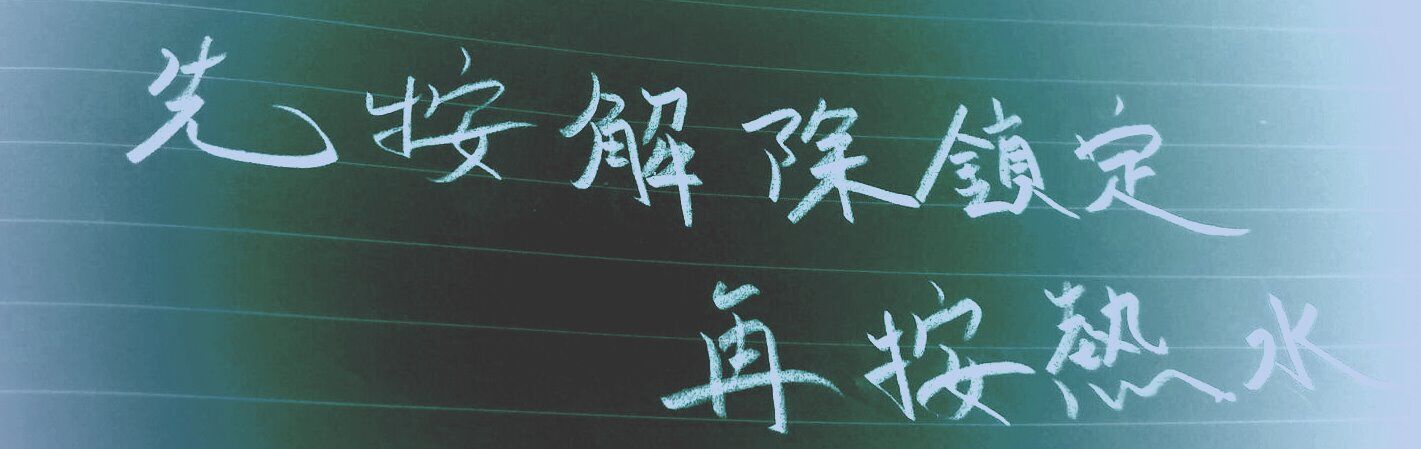 先按解除鎖定
再按熱水